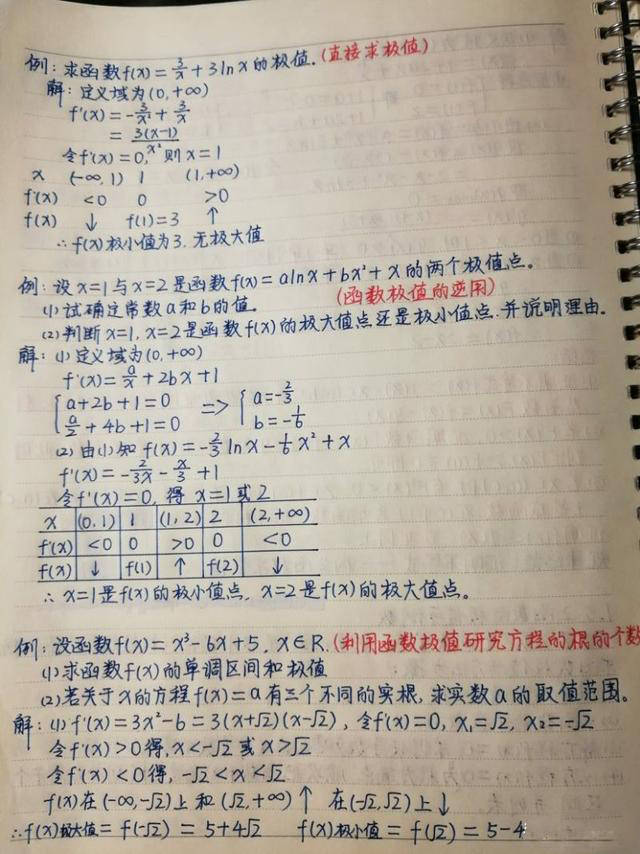 例：求函数f(x)=3/x+3lnx的极值.(直接求极值)
解：定义域为(0,+∞)
f'(x)=-3/x²+3/x
=3(x-1)/x²
令f'(x)=0,则x=1
x (-∞,1) 1 (1,+∞)
f'(x) <0 0 >0
f(x) ↓ f(1)=3 ↑
∴f(x)极小值为3,无极大值
例：设x=1与x=2是函数f(x)=alnx+bx²+x的两个极值点。
(1)试确定常数a和b的值. (函数极值的逆用)
(2)判断x=1,x=2是函数f(x)的极大值点还是极小值点.并说明理由.
解：(1)定义域为(0,+∞)
f'(x)=a/x+2bx+1
{a+2b+1=0 => {a=-2/3
a/2+4b+1=0 b=-1/6
(2)由(1)知f(x)=-2/3lnx-1/6x²+x
f'(x)=-2/3x-x/3+1
令f'(x)=0,得x=1或2
x (0,1) 1 (1,2) 2 (2,+∞)
f'(x) <0 0 >0 0 <0
f(x) ↓ f(1) ↑ f(2) ↓
∴x=1是f(x)的极小值点,x=2是f(x)的极大值点。
例：设函数f(x)=x³-6x+5,x∈R.(利用函数极值研究方程的根的个数
(1)求函数f(x)的单调区间和极值
(2)若关于x的方程f(x)=a有三个不同的实根,求实数a的取值范围。
解：(1)f'(x)=3x²-6=3(x+√2)(x-√2),令f'(x)=0,x₁=√2,x₂=-√2
令f'(x)>0得,x<-√2或x>√2
令f'(x)<0得,-√2<x<√2
f(x)在(-∞,-√2)上和(√2,+∞)↑ 在(-√2,√2)上↓
∴f(x)极大值=f(-√2)=5+4√2 f(x)极小值=f(√2)=5-4